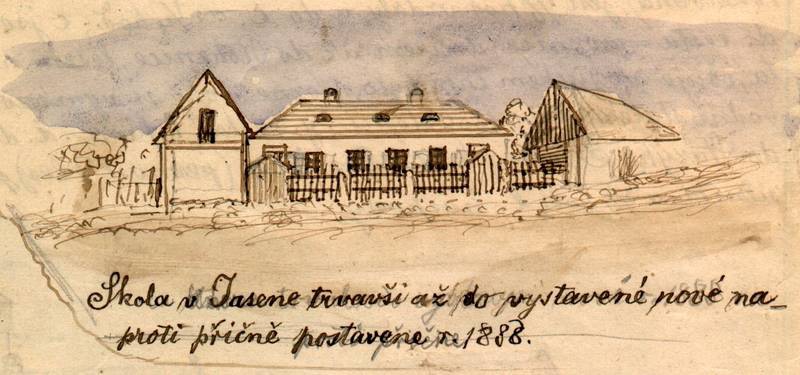 Skola v Jasene trvavši až do vystavené nové na-
proti příčně postavene r. 1888.